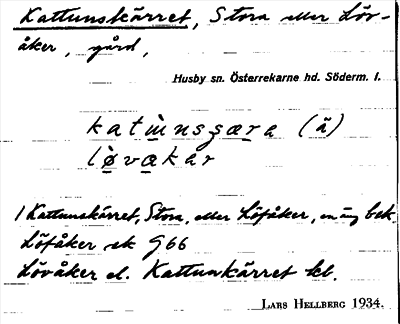 Kattunskärret, Stora eller Löv-
åker, gård,
Husby sn. Österrekarne hd. Söderm. l.
katùnsʂæra (ä)
lø̀vakar
1 Kattunskärret, Stora, eller Löfåker, en äg bsk.
Löfåker ek G66
Lövåker el. Kattunkärret kb.
LARS HELLBERG 1934.